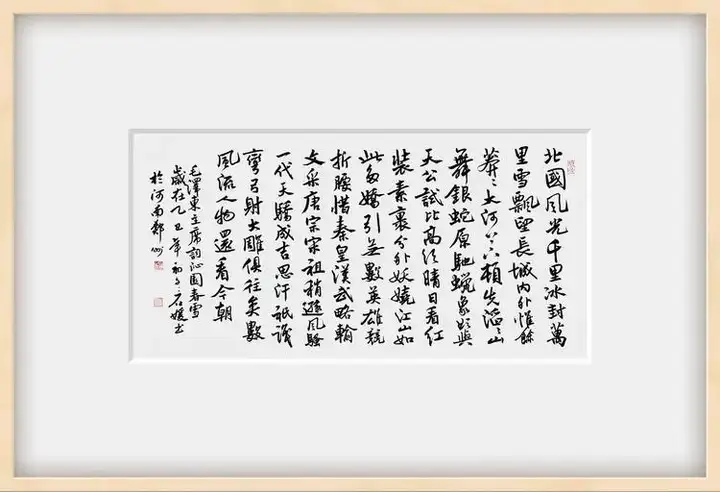 北國風光千里冰封萬
里雪飄望長城內外惟餘
莽〻大河上下頓失滔〻山
舞銀蛇原馳蠟象欲與
天公試比高須晴日看紅
裝素裹分外妖嬈江山如
此多嬌引無數英雄競
折腰惜秦皇漢武略輸
文采唐宗宋祖稍遜風騷
一代天驕成吉思汗祇識
彎弓射大雕俱往矣數
風流人物還看今朝
毛澤東主席詞沁園春雪
歲在乙巳年初石媛書
於河南鄭州